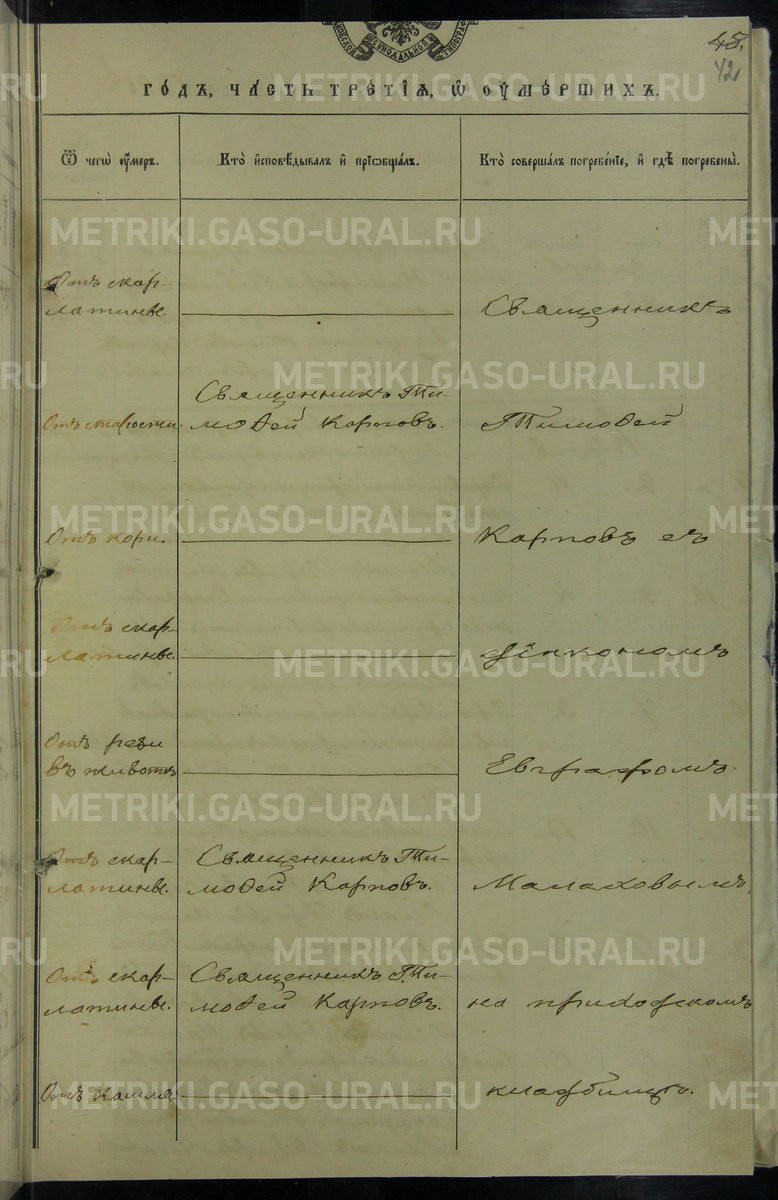 45.
42
годъ, часть третїѧ, ѡ оумершихъ.
Ѿ чегѡ оумеръ.
Кто исповѣдывалъ и прїѡбщалъ.
Кто совершалъ погребенїе, и гдѣ погребены.
Отъ скар-
латины.
Священникъ
Отъ старости.
Священникъ Ти-
моѳей Карповъ.
Тимоѳей
Отъ кори.
Карповъ съ
Отъ скар-
латины.
діакономъ
Отъ рези
въ животѣ
Евграфомъ
Отъ скар-
латины.
Священникъ Ти-
моѳей Карповъ.
Малаховымъ,
Отъ скар-
латины.
Священникъ Ти-
моѳей Карповъ.
на приходскомъ
Отъ кашля
кладбищѣ.
METRIKI.GASO-URAL.RU